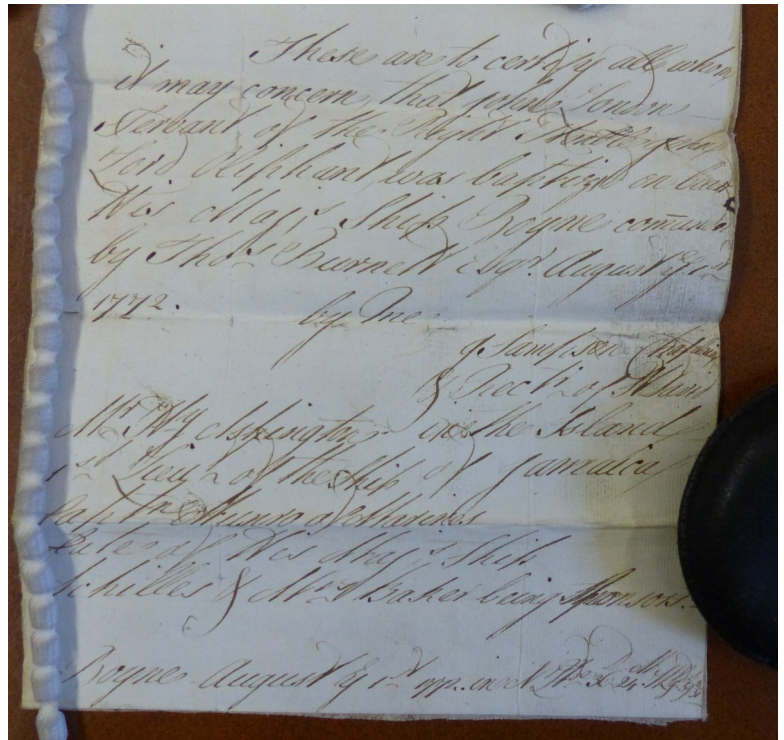 These are to certify all whom
it may concern, that John London
Servant of the Right Honble
Lord Oliphant, was baptized on board
His Majs Ship Boyne
by Thos Burnett Esqr. August ye 1st
1772. by Me
J Sampson Chaplain
& Rectr of
Mr Hy in the Island
1st Lieut of the Ship of Jamaica
Captn Munro of Marines
Late of His Majs Ship
Achilles & Mr Baker being Sponsors.
Boyne August ye 1st 1772. in N